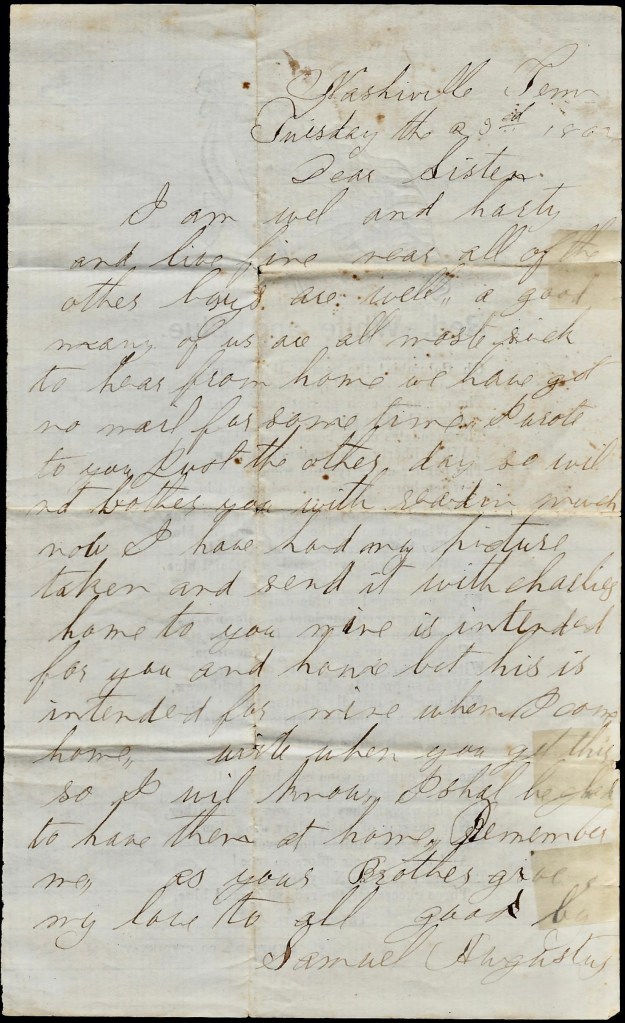 Nashville Tenn
Tuesday the 23rd 186
Dear Sister
I am wel and harty
and live fine near all of the
other boys are well, a good
many of us are all most sick
to hear from home we have got
no mail for some time I wrote
to you the other day so will
not bother you with readin much
now I have had my picture
taken and send it with charlies
home to you mine is intended
for you and home but his is
intended for mine when I come
home, write when you get this
so I wil know, I shal be glad
to have them at home, Remember
me, as your Brother give
my love to all good by
Samuel Augustus